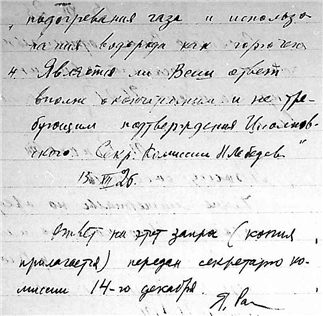 подогревания газа и использо
вания водорода как горючего
4. Является ли Ваш ответ
вполне окончательным и не тре-
бующим подтверждения Циолков-
ского. Секр. Комиссии Н. Лебедев"
13 XII 26.
Ответ на этот запрос (копия
прилагается) передан секретарю ко-
миссии 14-го декабря.